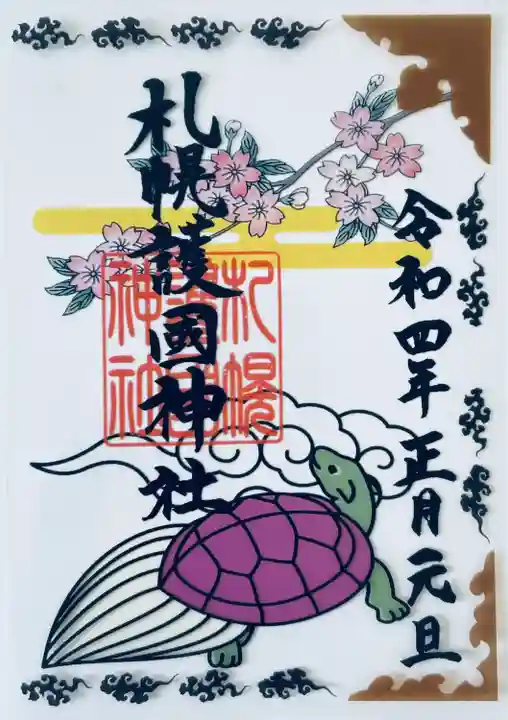 令和四年 正月元旦
札幌護國神社
札幌
護國
神社